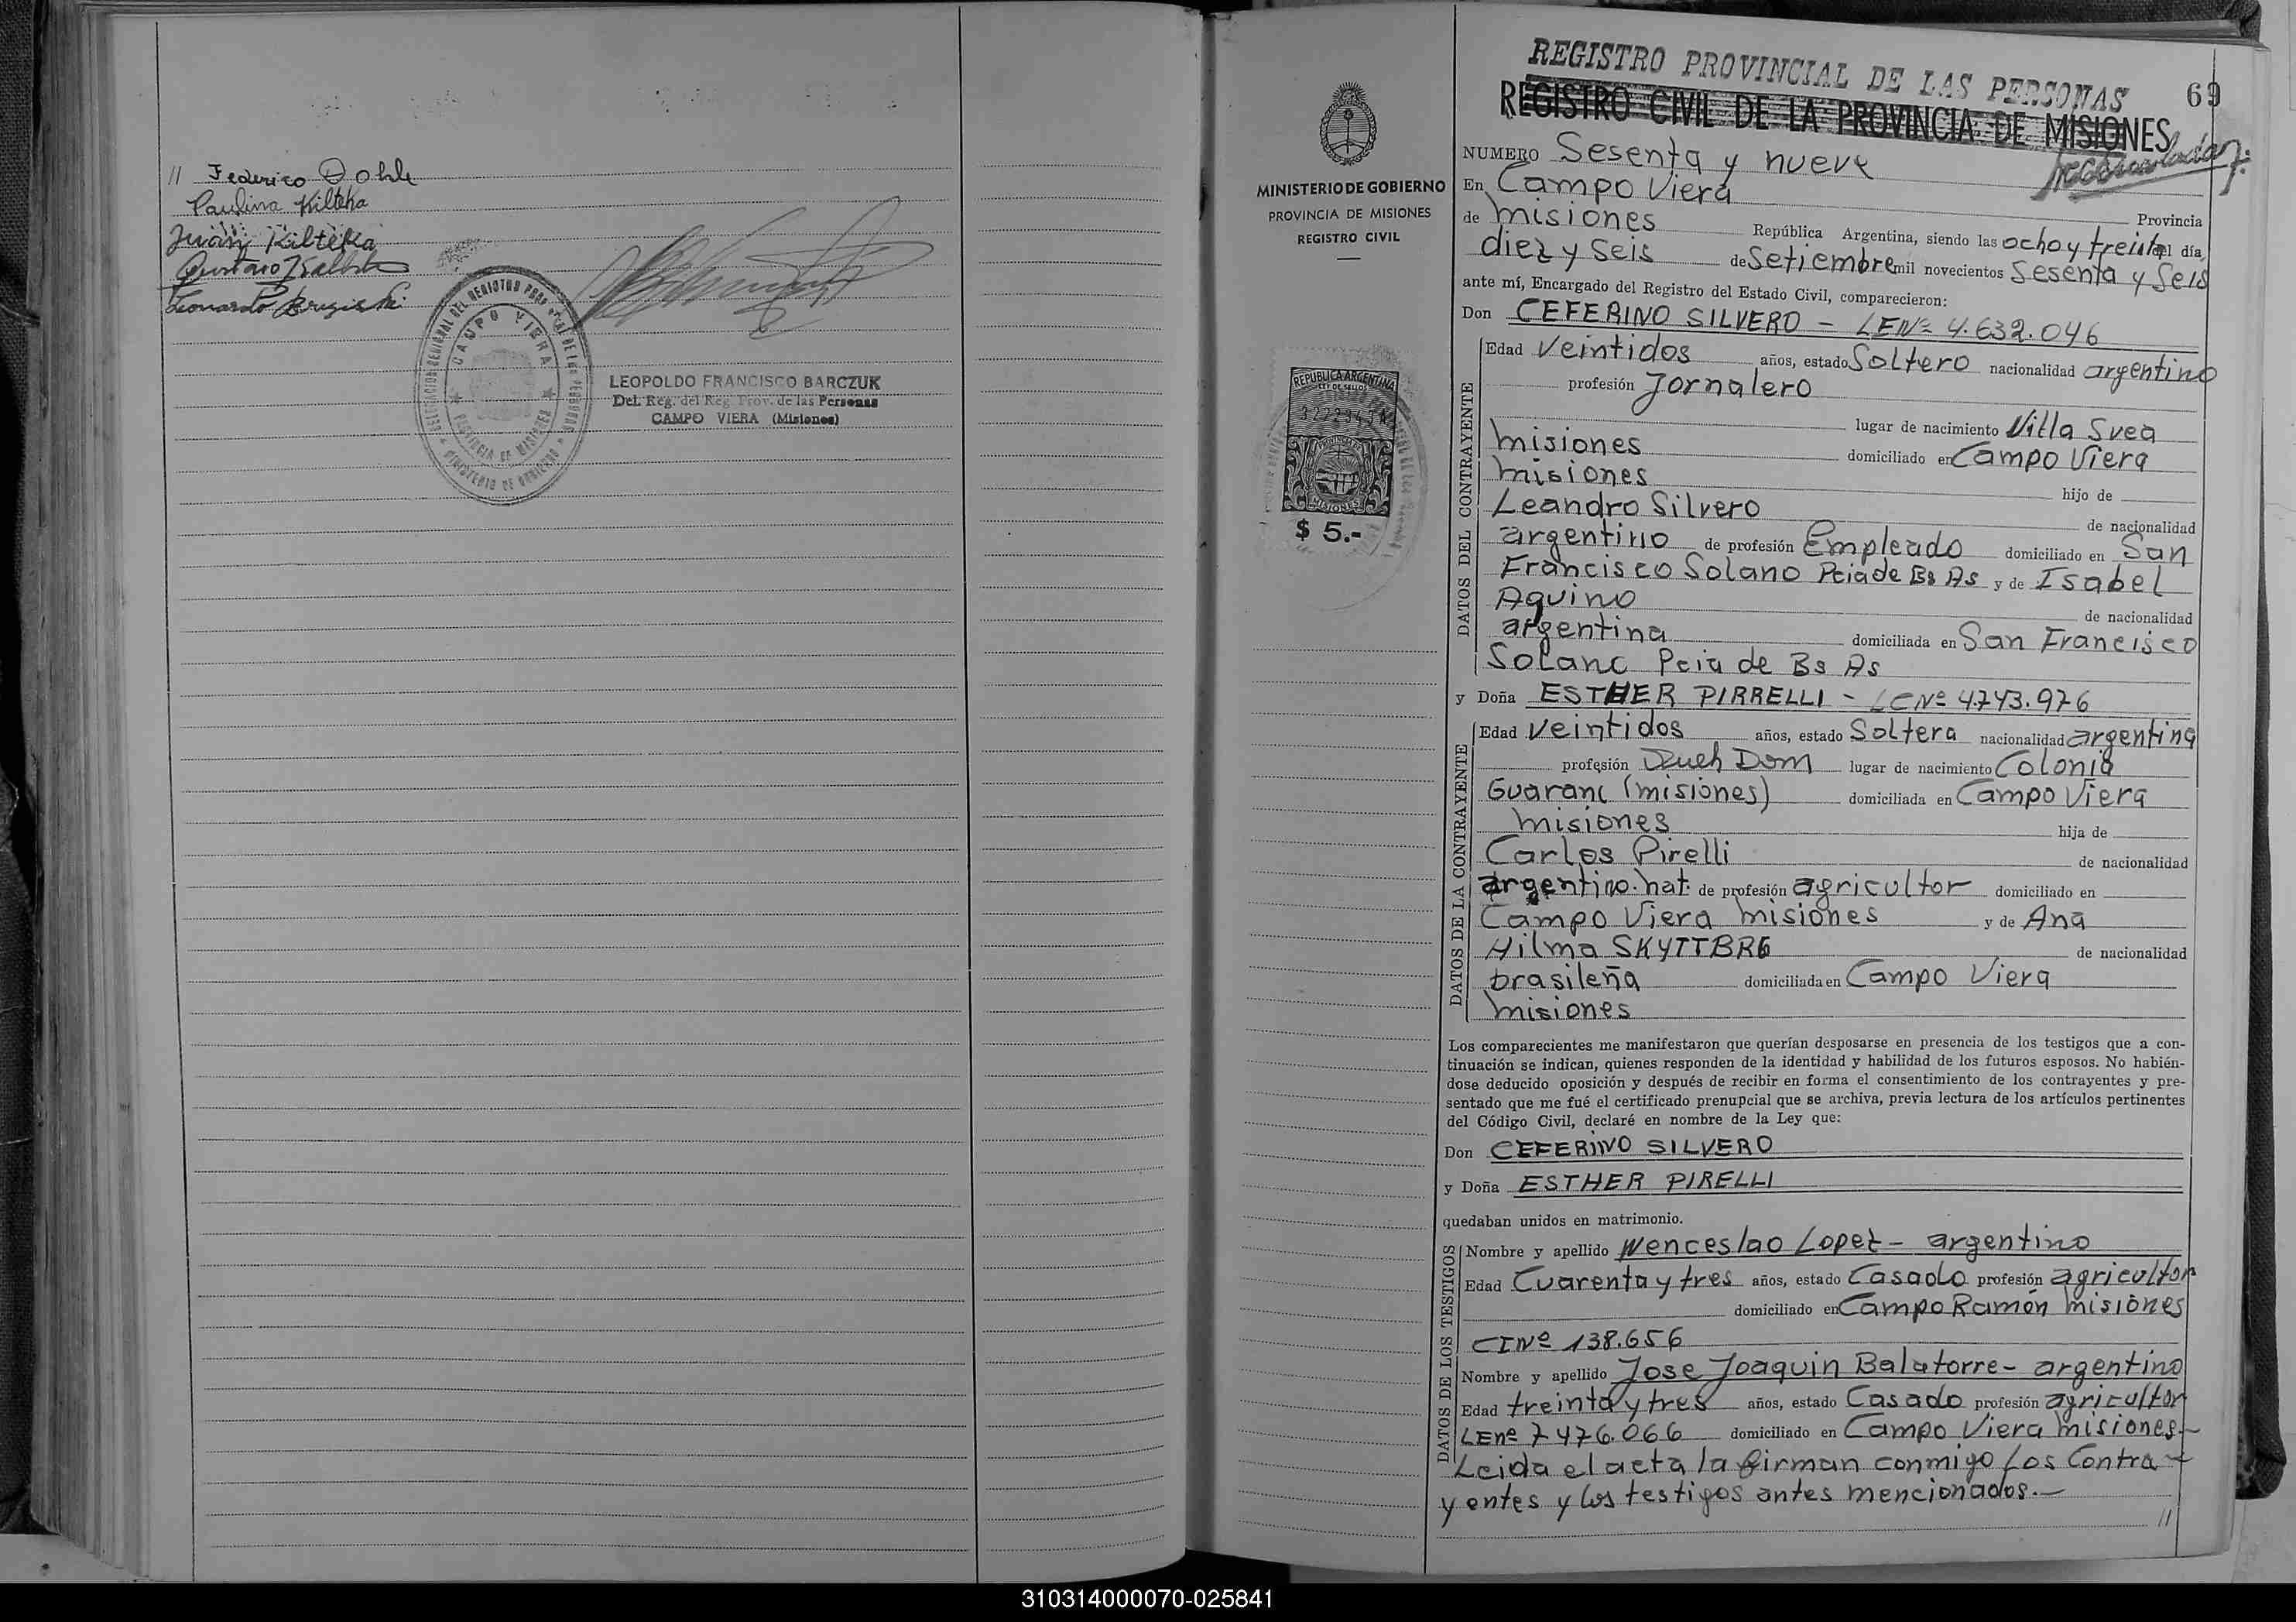 // Federico Dohle
Paulina Kilteka
Juan Kilteka
Gustavo
Leonardo
CAMPO VIERA
PROVINCIA DE MISIONES
LEOPOLDO FRANCISCO BARCZUK
Del. Reg. del Reg. Prov. de las Personas
CAMPO VIERA (Misiones)
MINISTERIO DE GOBIERNO
PROVINCIA DE MISIONES
REGISTRO CIVIL
REPUBLICA ARGENTINA
LEY DE SELLOS
MISIONES
$ 5.-
REGISTRO PROVINCIAL DE LAS PERSONAS
69
REGISTRO CIVIL DE LA PROVINCIA DE MISIONES
NUMERO Sesenta y nueve
En Campo Viera
Provincia
de misiones República Argentina, siendo las ocho y treinta el día,
diez y seis de Setiembre mil novecientos Sesenta y Seis
ante mí, Encargado del Registro del Estado Civil, comparecieron:
Don CEFERINO SILVERO - LENº 4.632.046
DATOS DEL CONTRAYENTE
Edad Veintidos años, estado Soltero nacionalidad argentino
profesión Jornalero
lugar de nacimiento Villa Svea
misiones domiciliado en Campo Viera
misiones hijo de
Leandro Silvero de nacionalidad
argentino de profesión Empleado domiciliado en San
Francisco Solano Pcia de Bs As y de Isabel
Aquino de nacionalidad
argentina domiciliada en San Francisco
Solano Pcia de Bs As
y Doña ESTHER PIRRELLI - LCNº 4.743.976
DATOS DE LA CONTRAYENTE
Edad Veintidos años, estado Soltera nacionalidad argentina
profesión Queh Dom lugar de nacimiento Colonia
Guarani (misiones) domiciliada en Campo Viera
misiones hija de
Carlos Pirelli de nacionalidad
argentino nat. de profesión agricultor domiciliado en
Campo Viera misiones y de Ana
Hilma SKYTTBRG de nacionalidad
brasileña domiciliada en Campo Viera
misiones
Los comparecientes me manifestaron que querían desposarse en presencia de los testigos que a con-
tinuación se indican, quienes responden de la identidad y habilidad de los futuros esposos. No habién-
dose deducido oposición y después de recibir en forma el consentimiento de los contrayentes y pre-
sentado que me fué el certificado prenupcial que se archiva, previa lectura de los artículos pertinentes
del Código Civil, declaré en nombre de la Ley que:
Don CEFERINO SILVERO
y Doña ESTHER PIRELLI
quedaban unidos en matrimonio.
DATOS DE LOS TESTIGOS
Nombre y apellido Wenceslao Lopez - argentino
Edad Cuarenta y tres años, estado Casado profesión agricultor
domiciliado en Campo Ramón misiones
CINº 138.656
Nombre y apellido Jose Joaquin Balatorre - argentino
Edad treinta y tres años, estado Casado profesión agricultor
LEnº 7 476.066 domiciliado en Campo Viera misiones -
Leida el acta la firman conmigo los Contra -
yentes y los testigos antes mencionados. -
//
310314000070-025841